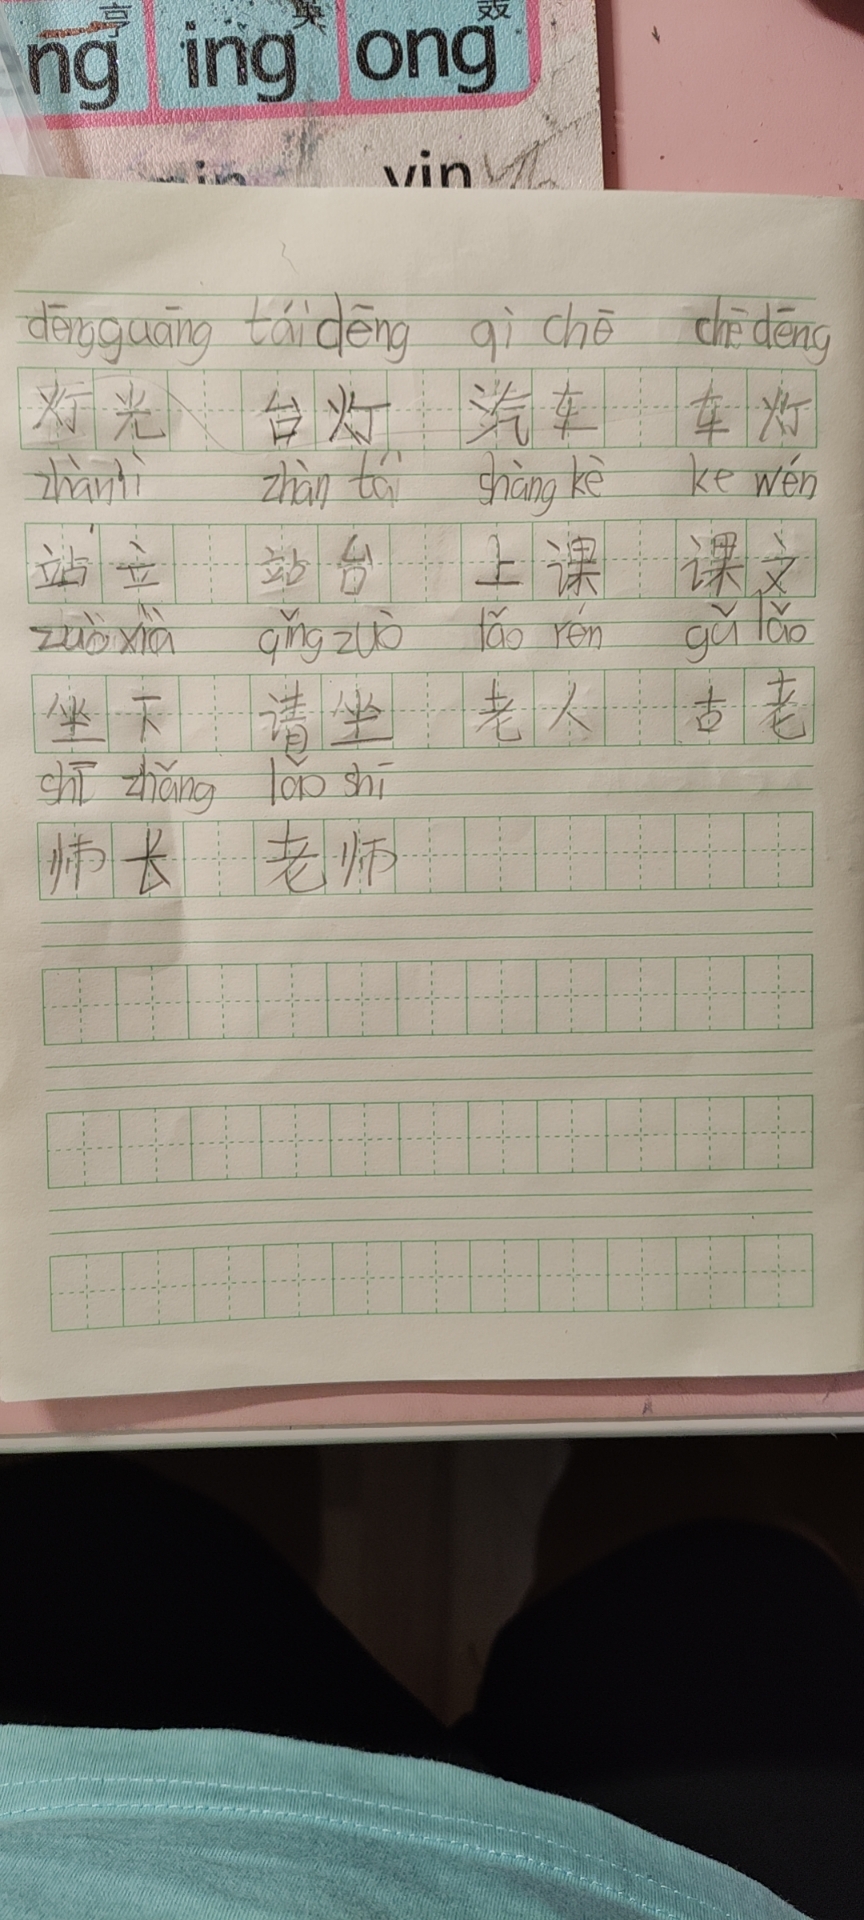 亨 英 
ng ing ong
yin
dēngguāng táidēng qì chē chēdēng
灯光 台灯 汽车 车灯
zhànlì zhàn tái shàng kè ke wén
站立 站台 上课 课文
zuò xià qǐng zuò lǎo rén gǔ lǎo
坐下 请坐 老人 古老
shī zhǎng lǎo shī
师长 老师